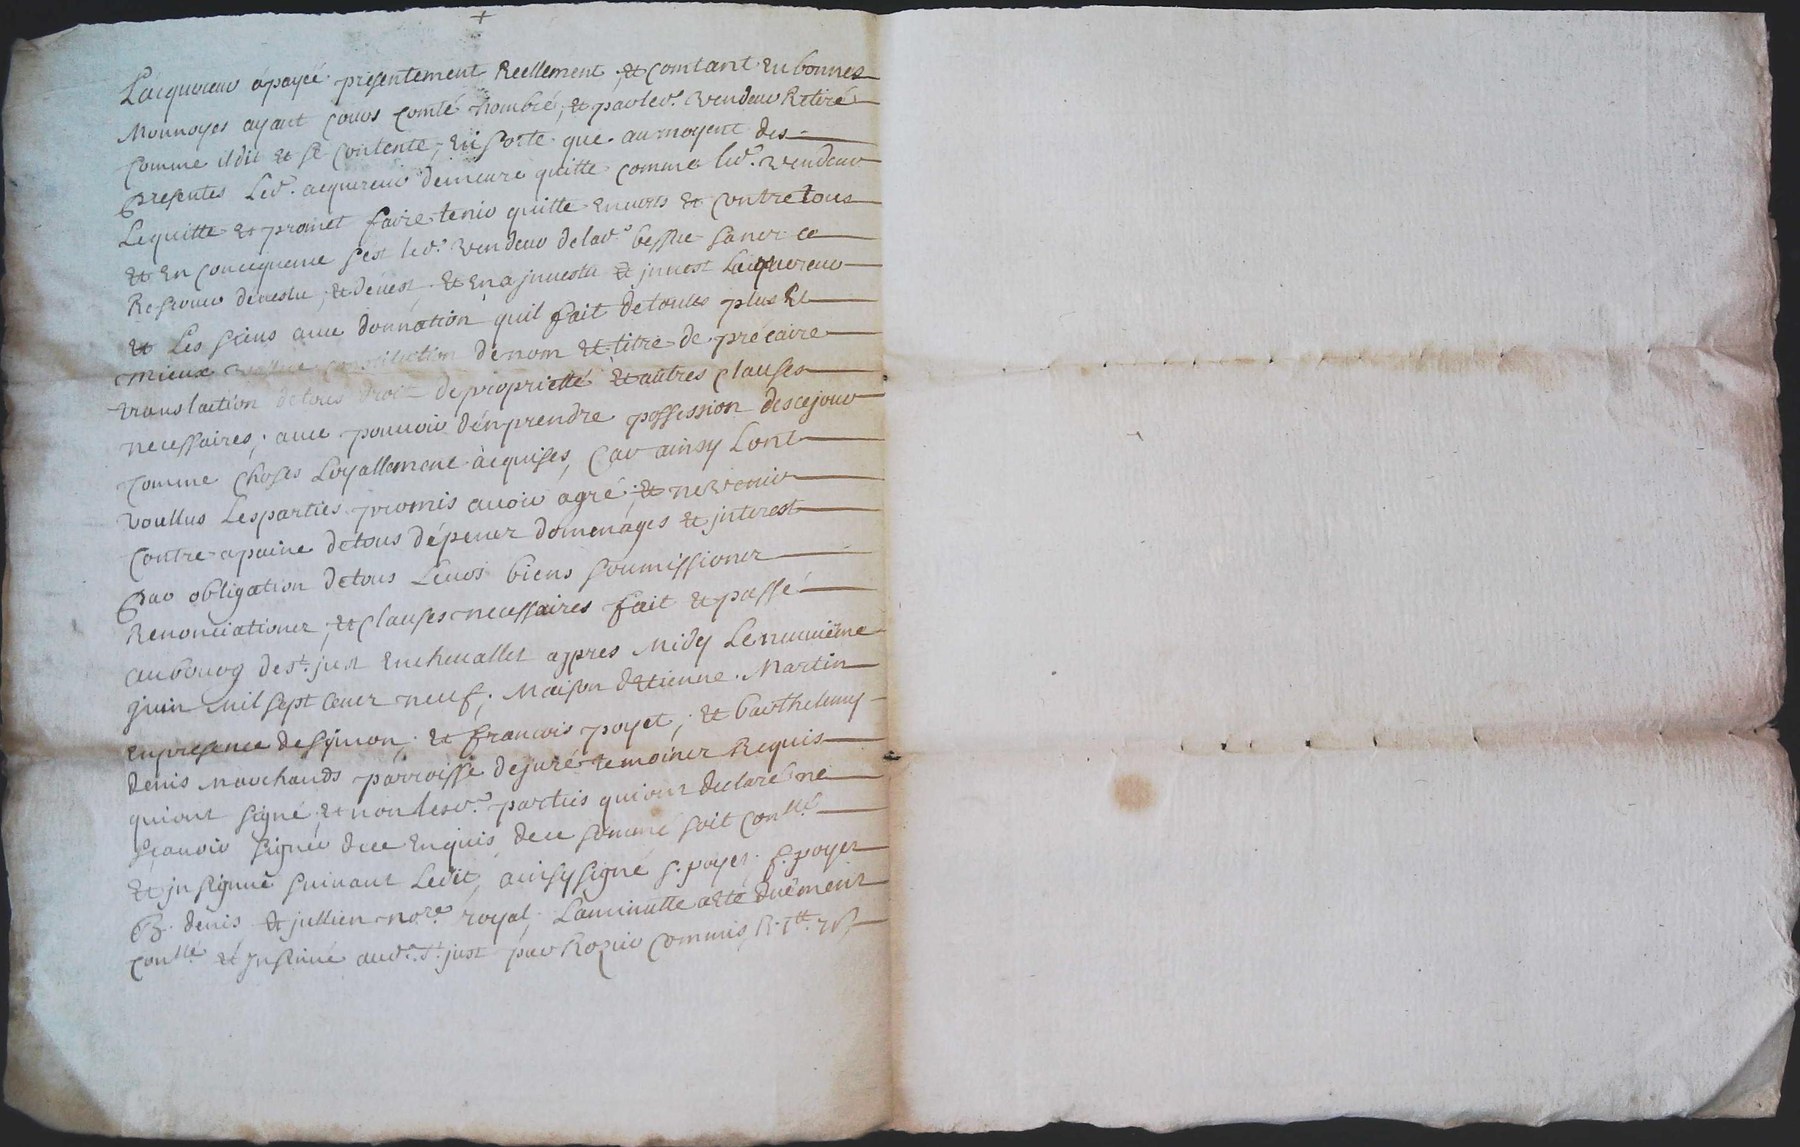 +
Lacquereur apayéé presentement Reellement, et comtant En bonnes
Monnoyes ayant cours comté nombré, et par led. vendeur Retiré
comme il dit et se contente, En sorte que au moyent des
presentes Led. acquereur demeure quitte comme led. vendeur
Lequitte et promet faire tenir quitte Envers et contre tous
et En concequence sest led. vendeur delad. sans ce
Reserver devestu, et devest et En a jnvestu et jnvest Lacquereur
et Les siens avec donnation quil fait detoutes plus Et
mieux vallue constitution de nom et titre de précaire
translaction detous droit de proprietté et autres clauses
necessaires, avec pouvoir dénprendre possession descejour
comme choses Loyallement acquises, Car ainsy Lont
voullus Lesparties promis avoir agré, et ne venir
contre apaine detous dépener domenages et jnterest
Par obligation detous Leurs biens soumissioner
Renonciationer, et clauses necessaires fait et passé
aubourg de st. just Enchevallet appres Midy Le neuviéme
juin Mil sept cener neuf, Maison détienne Martin
Enpresence de symon, et francois poyet, et barthelemy
denis marchands parroisse de juré temoiner Requis
quiont signé et non lesd. parties quiont declaré ne
sçavoir signer dece Enquis, dece sommé soit conllé
et jnsignué suivant Ledit, ainsy signé s. poyet f. poyet
B. denis et jullien nore. royal, Laminutte aeté duëment
conllé et jnsinué aud. st. just par Rozier commis R.